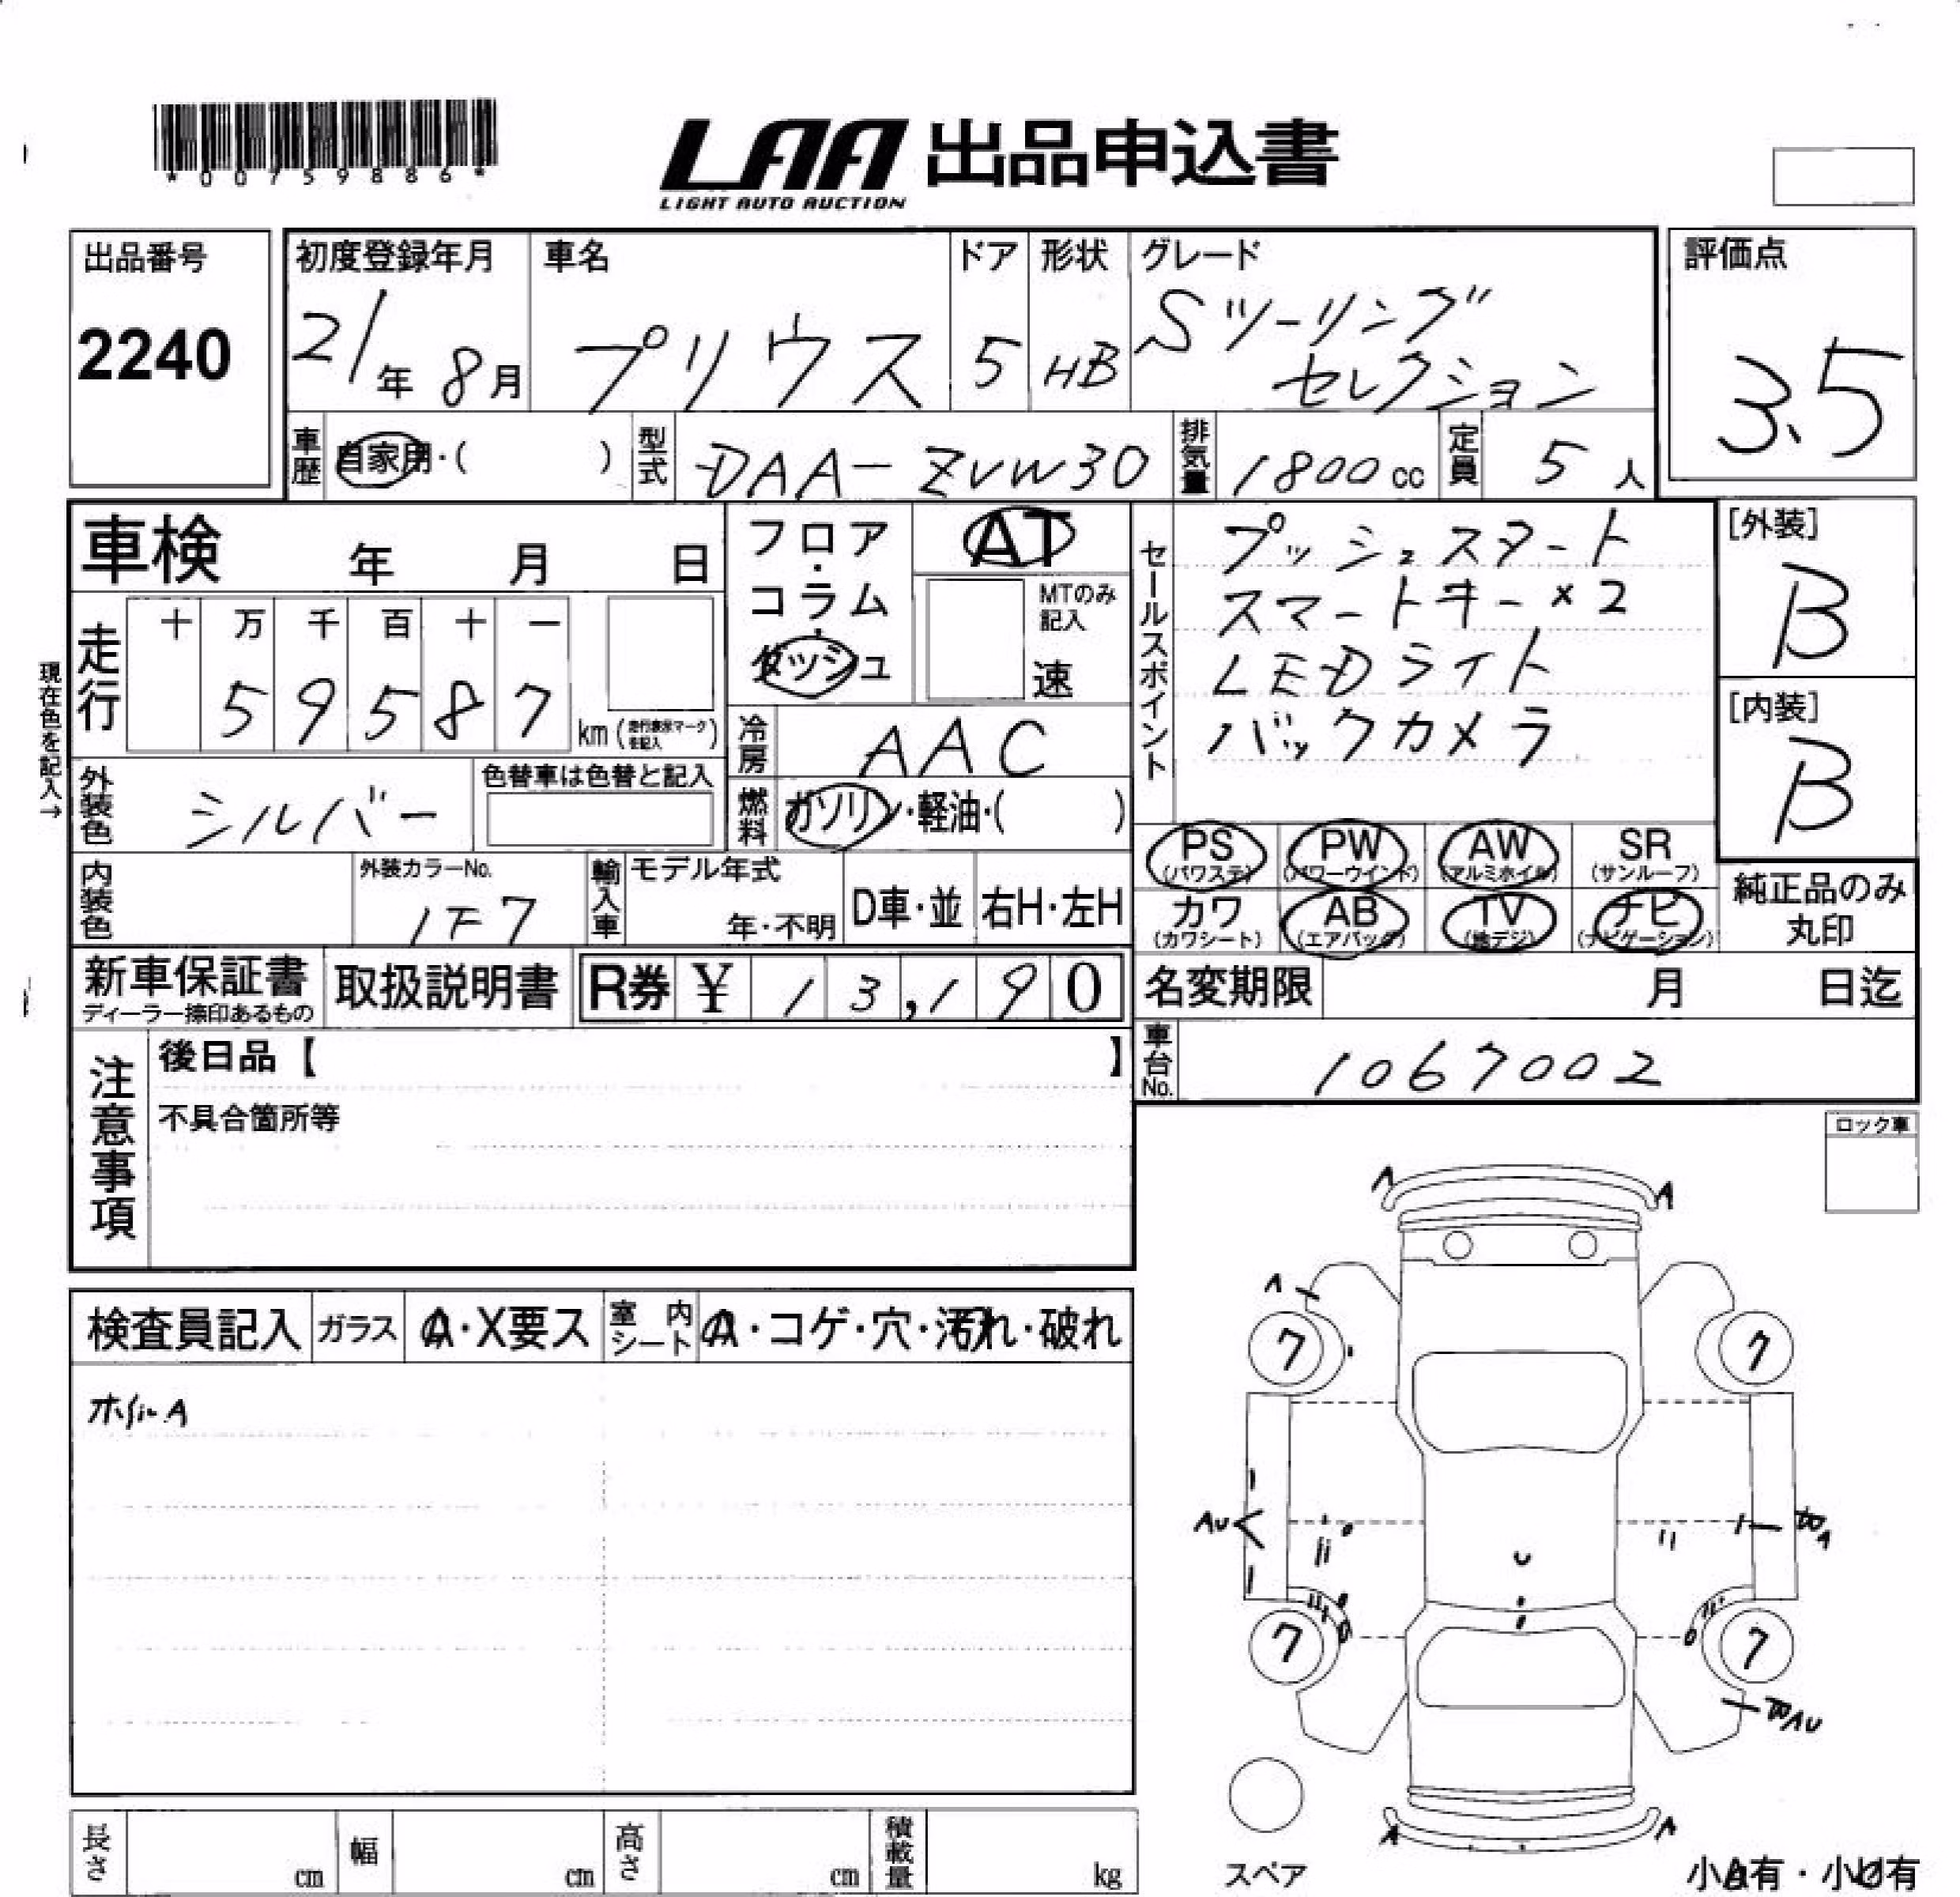 *00759886*
LAA 出品申込書
LIGHT AUTO AUCTION
出品番号
2240
初度登録年月
21年 8月
車名
プリウス
ドア
5
形状
HB
グレード
Sツーリング
セレクション
評価点
3.5
車歴
自家用・( )
型式
DAA-ZVW30
排気量
1800cc
定員
5人
車検 年 月 日
フロア・コラム・ダッシュ
AT
MTのみ
記入
速
セールスポイント
プッシュスタート
スマートキー×2
LEDライト
バックカメラ
[外装]
B
[内装]
B
現在色を記入→
走行
十 万 千 百 十 一
5 9 5 8 7
km(走行表示マークを記入)
冷房
AAC
外装色
シルバー
色替車は色替と記入
燃料
ガソリン・軽油・( )
PS
(パワステ)
PW
(パワーウインド)
AW
(アルミホイル)
SR
(サンルーフ)
内装色
外装カラーNo.
1F7
輸入車
モデル年式
年・不明
D車・並
右H・左H
カワ
(カワシート)
AB
(エアバッグ)
TV
(地デジ)
ナビ
(ナビゲーション)
純正品のみ
丸印
新車保証書
ディーラー捺印あるもの
取扱説明書
R券 ¥ 13,190
名変期限 月 日迄
車台No.
1067002
注意事項
後日品【 】
不具合箇所等
ロック車
検査員記入
ガラス
A・X要ス
室内シート
A・コゲ・穴・汚れ・破れ
ホイルA
A
A
A
ワ
ワ
AU
A
ワ
ワ
AU
A
A
スペア
小A有・小U有
長さ cm
幅 cm
高さ cm
積載量 kg